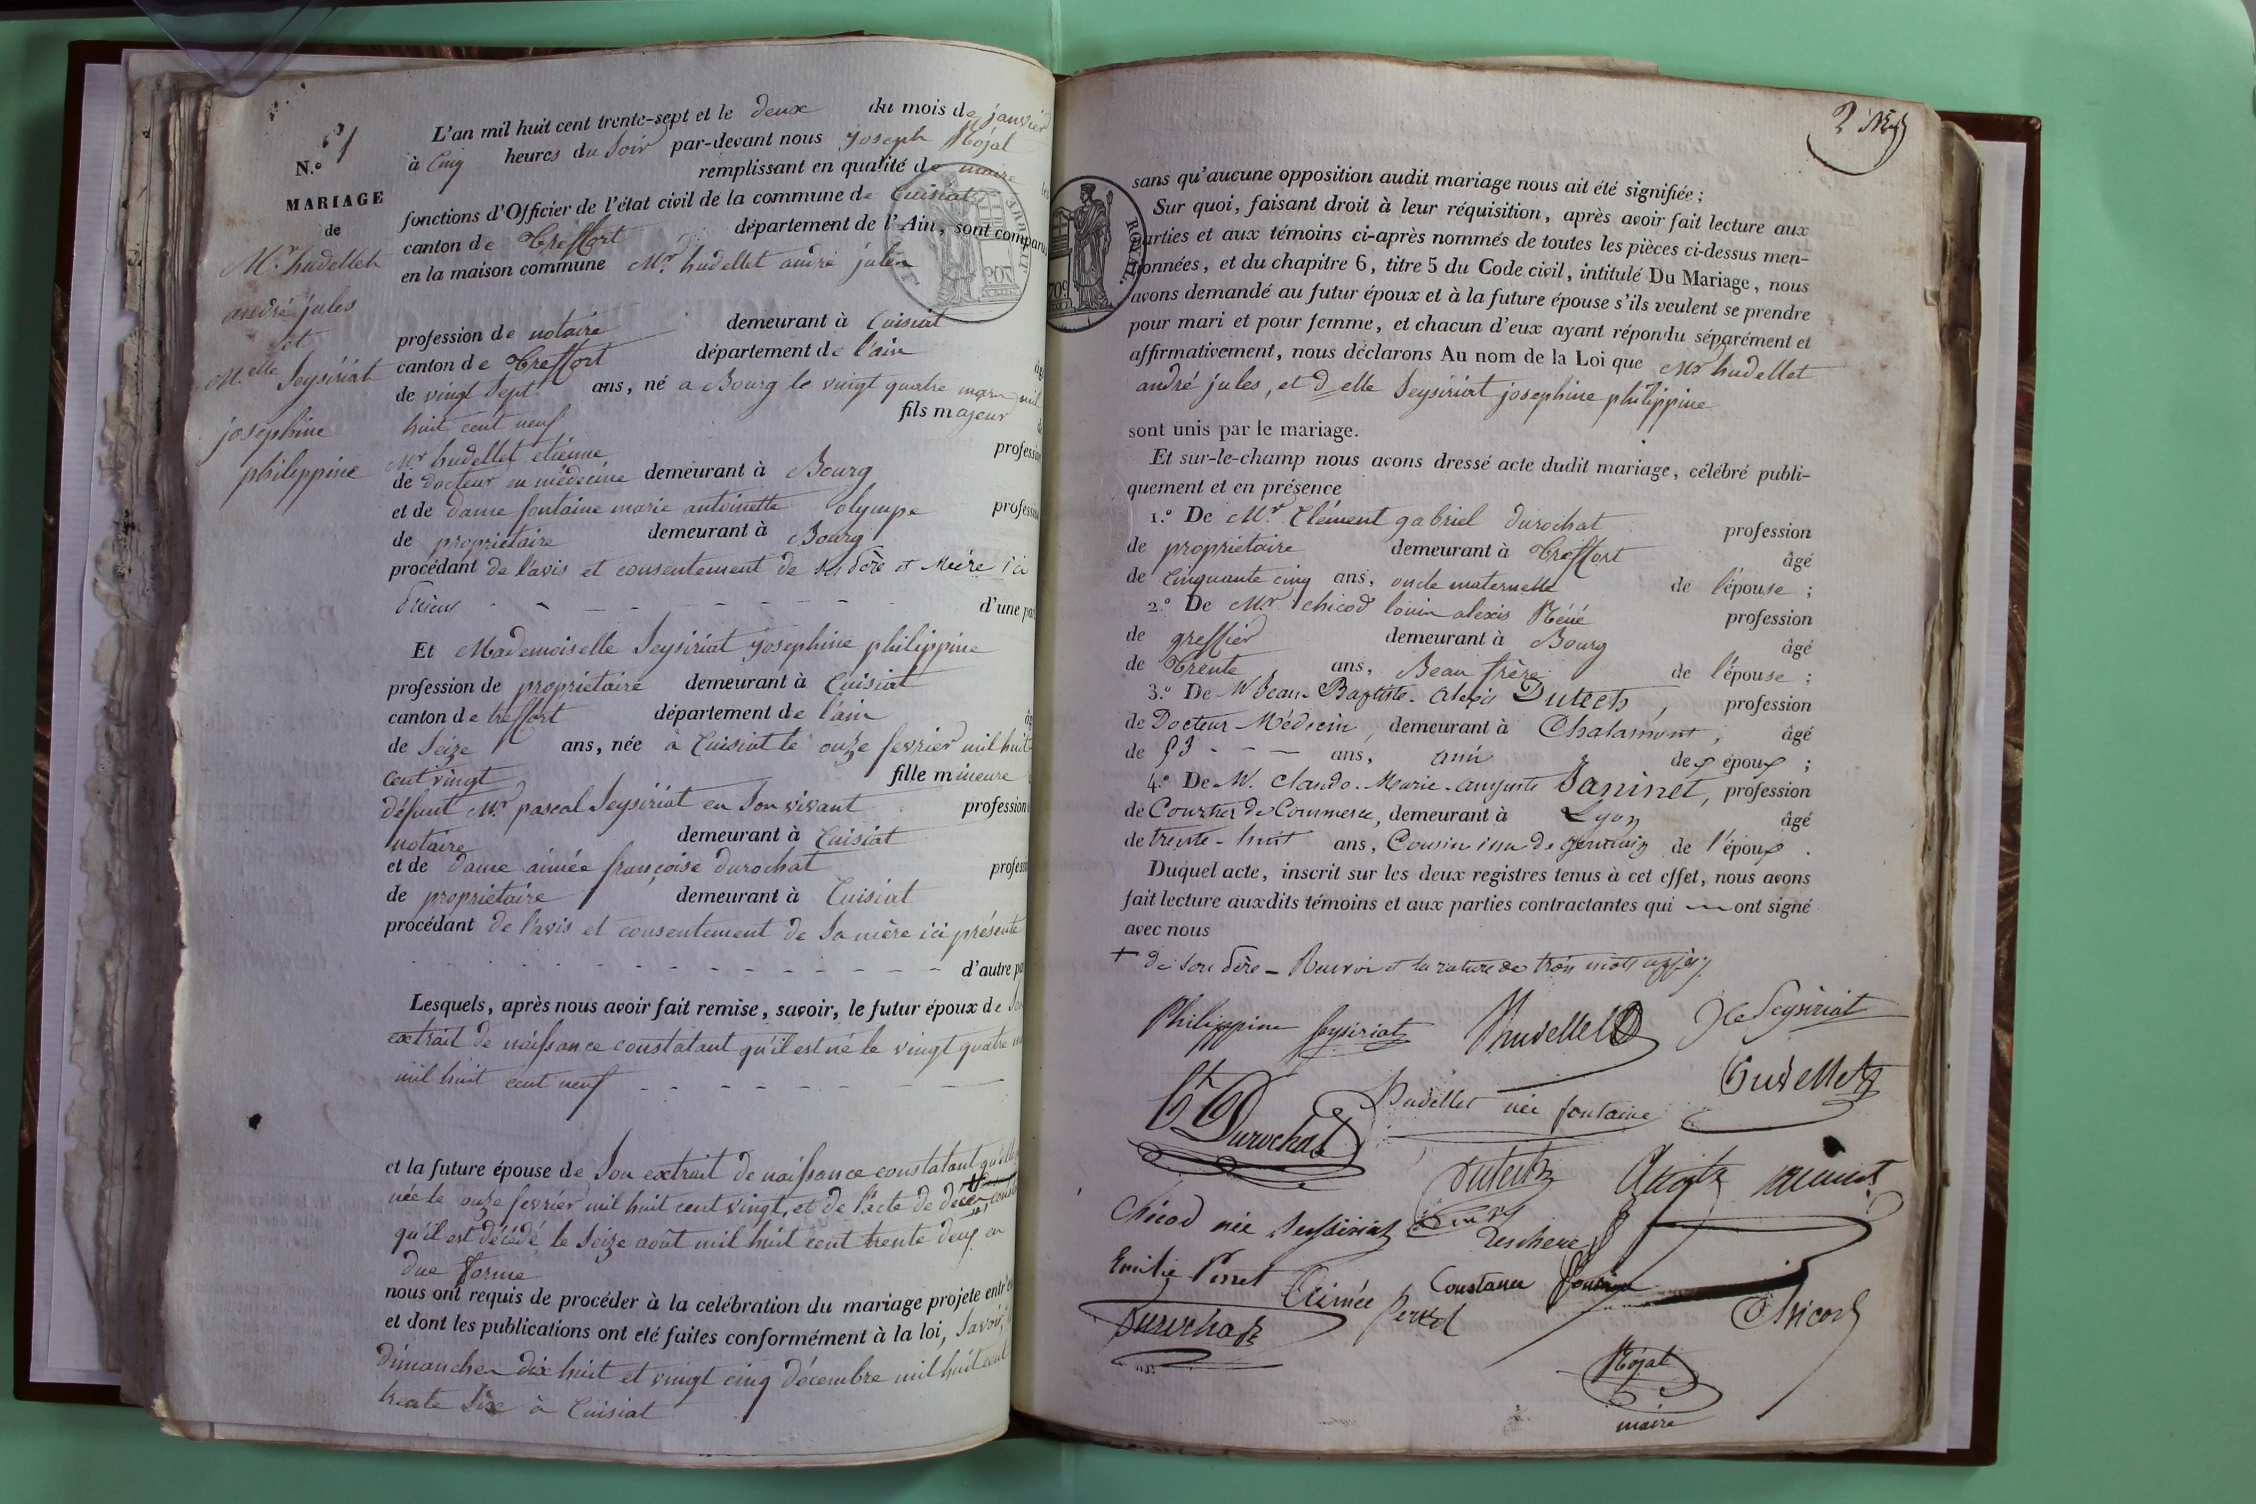 N.º 1
MARIAGE
de
Mr. hudellet
andré jules
et
M.elle Seysiriat
josephine
philippine
L'an mil huit cent trente-sept et le deux du mois de janvier
à Cinq heures du Soir par-devant nous joseph Rojat
remplissant en qualité de maire les
fonctions d'Officier de l'état civil de la commune de Cuisiat
canton de Treffort département de l'Ain, sont comparus
en la maison commune Mr. hudellet andré jules
profession de notaire demeurant à Cuisiat
canton de Treffort département de l'ain âg
de vingt Sept ans, né a Bourg le vingt quatre mars mil
huit cent neuf fils majeur d
Mr hudellet etienne profession
de docteur en médecine demeurant à Bourg
et de dame fontaine marie antoinette olympe profession
de propriétaire demeurant à Bourg
procédant de l'avis et consentement de ses Père et Mère ici
d'une par
Et Mademoiselle Seysiriat josephine philippine
profession de propriétaire demeurant à Cuisiat
canton de treffort département de l'ain âg
de Seize ans, née à Cuisiat le onze fevrier mil huit
cent vingt fille mineure
défunt Mr. pascal Seysiriat en Son vivant profession
notaire demeurant à Cuisiat
et de dame aimée françoise durochat profession
de propriétaire demeurant à Cuisiat
procédant de l'avis et consentement de Sa mère ici présente
d'autre pa
Lesquels, après nous avoir fait remise, savoir, le futur époux de Son
extrait de naissance constatant qu'il est né le vingt quatre
mil huit cent neuf
et la future épouse de Son extrait de naissance constatant qu'elle
née le onze fevrier mil huit cent vingt, et de l'acte de décès + const
qu'il est décédé le Seize août mil huit cent trente deux en
due forme
nous ont requis de procéder à la celébration du mariage projeté entr'e
et dont les publications ont été faites conformément à la loi, Savoir,
dimanches dix huit et vingt cinq décembre mil huit cent
trente Six à Cuisiat
2
ROYAL
sans qu'aucune opposition audit mariage nous ait été signifiée;
Sur quoi, faisant droit à leur réquisition, après avoir fait lecture aux
parties et aux témoins ci-après nommés de toutes les pièces ci-dessus men-
tionnées, et du chapitre 6, titre 5 du Code civil, intitulé Du Mariage, nous
avons demandé au futur époux et à la future épouse s'ils veulent se prendre
pour mari et pour femme, et chacun d'eux ayant répondu séparément et
affirmativement, nous déclarons Au nom de la Loi que Mr hudellet
andré jules, et d elle Seysiriat josephine philippine
sont unis par le mariage.
Et sur-le-champ nous avons dressé acte dudit mariage, célébré publi-
quement et en présence
1.º De Mr. Clément gabriel durochat profession
de propriétaire demeurant à Treffort âgé
de Cinquante cinq ans, oncle maternelle de l'épouse;
2.º De Mr. chicod louis alexis Réné profession
de greffier demeurant à Bourg âgé
de Trente ans, Beau frère de l'épouse;
3.º De M Jean-Baptiste-Alexis Dutech, profession
de Docteur Médecin, demeurant à Chalamont, âgé
de 53 ans, ami de x époux;
4.º De M. Claude-Marie-auguste Janinet, profession
de Courtier de Commerce, demeurant à Lyon âgé
de trente-huit ans, Cousin issu de germain de l'époux.
Duquel acte, inscrit sur les deux registres tenus à cet effet, nous avons
fait lecture auxdits témoins et aux parties contractantes qui ont signé
avec nous
+ de son Père - Renvoi et la rature de trois mots
Philippine Seysiriat hudellet Seysiriat
hudellet née fontaine hudellet
Durochat
Chicod née Seysiriat
Emilie Perret Aimée Perret Constance
Durochat Chicod
Rojat
maire